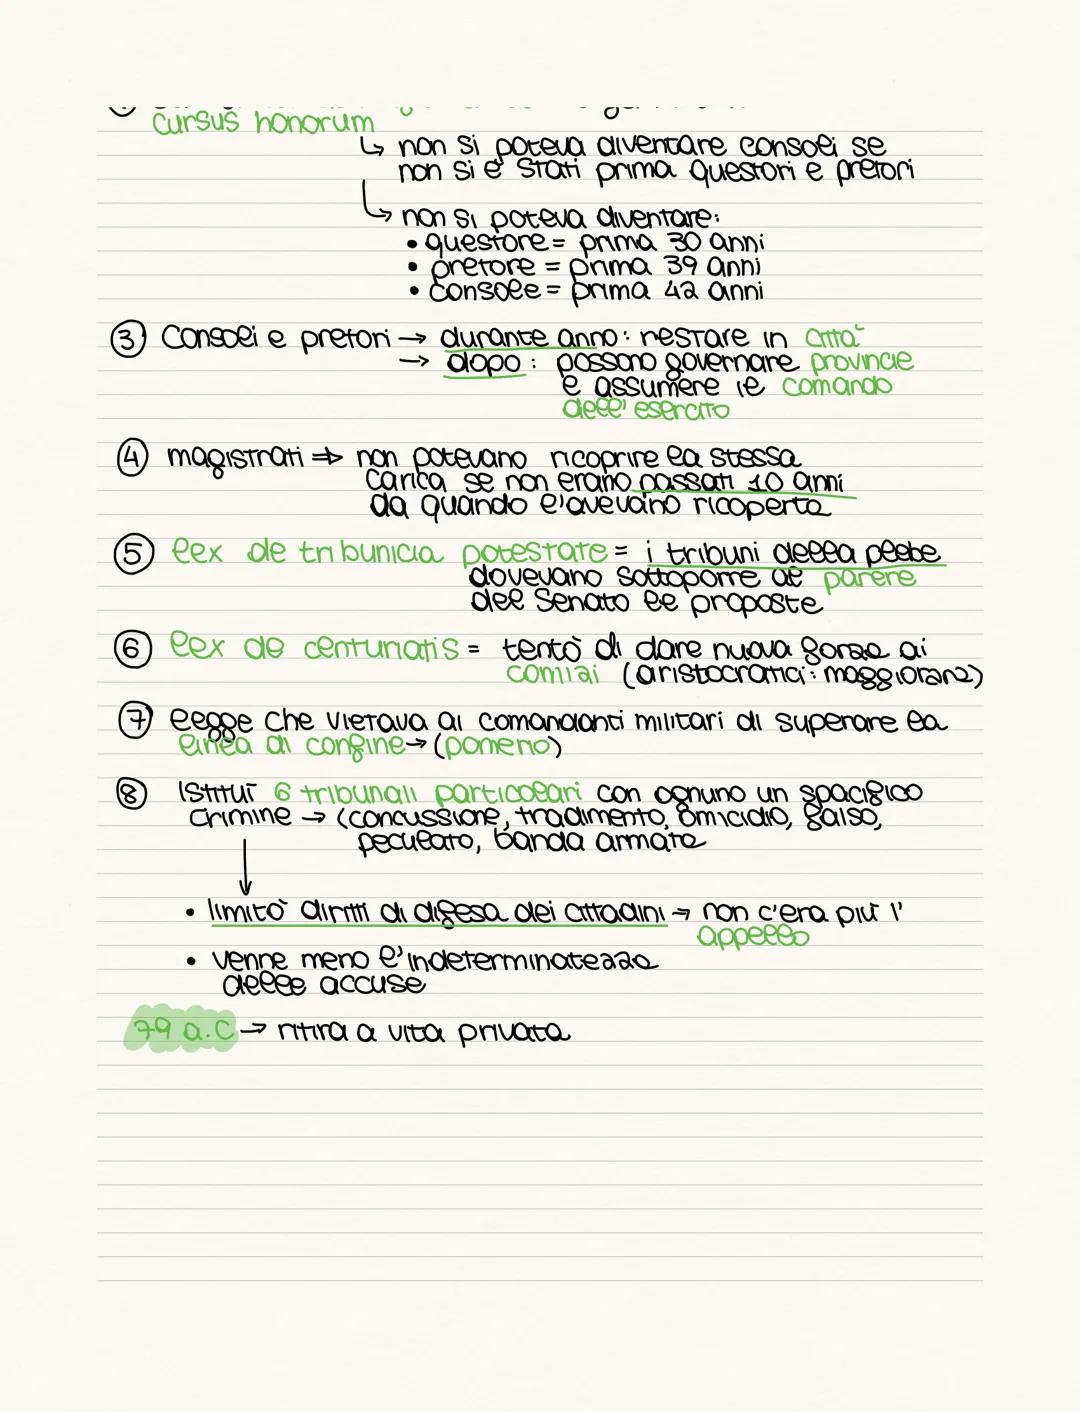 cursus honorum
↳ non si poteva diventare consoli se
non si è stati prima questori e pretori
↳ non si poteva diventare:
• questore = prima 30 anni
• pretore = prima 39 anni
• console = prima 42 anni
③ Consoli e pretori → durante anno: restare in città
→ dopo: possono governare provincie
e assumere il comando
dell'esercito
④ magistrati ⇒ non potevano ricoprire la stessa
carica se non erano passati 10 anni
da quando l'avevano ricoperta
⑤ lex de tribunicia potestate = i tribuni della plebe
dovevano sottoporre al parere
del Senato le proposte
⑥ lex de centuriatis = tentò di dare nuova forza ai
comizi (aristocratici: maggioranz)
⑦ legge che vietava ai comandanti militari di superare la
linea di confine → (pomerio)
⑧ istituì 6 tribunali particolari con ognuno un spacifico
crimine → (concussione, tradimento, omicidio, falso,
peculato, banda armata
↓
• limitò diritti di difesa dei cittadini → non c'era più l'
appello
• venne meno l'indeterminatezza
delle accuse
79 a.C → ritira a vita privata